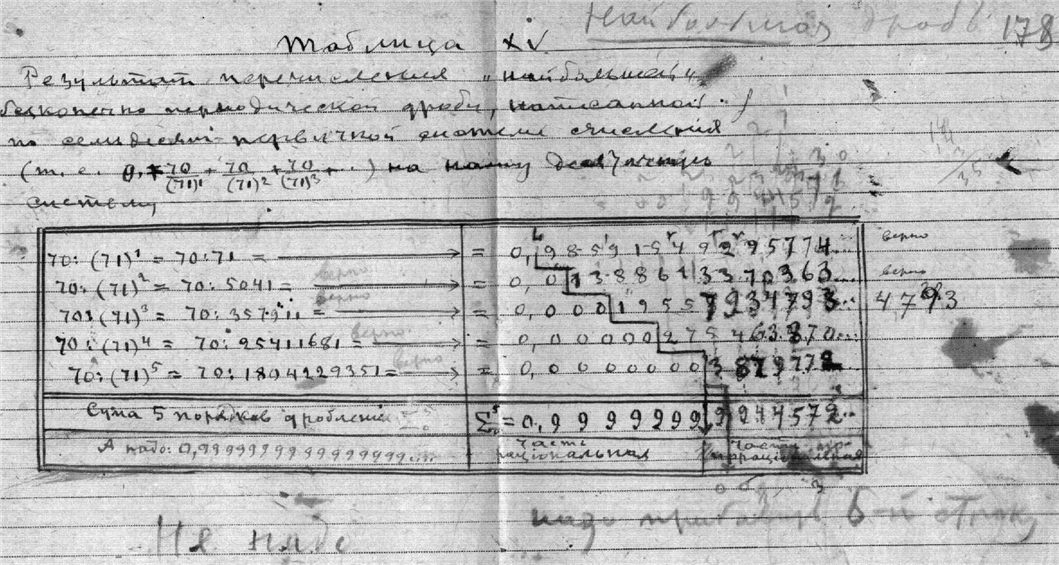 Наибольшая дробь 178
Таблица XV.
Результат перечисления „наибольшей“
бесконечно периодической дроби, написанной
по семидесяти-первичной системе счисления
(т. е. 0, + 70/(71)¹ + 70/(71)² + 70/(71)³ + ...) на нашу десятичную
систему
70:(71)¹ = 70:71 = = 0,98591549295774... верно
70:(71)² = 70:5041 = верно = 0,01388613370363... верно
70:(71)³ = 70:357911 = верно = 0,00019557934793... 4793
70:(71)⁴ = 70:25411681 = верно = 0,00000275463870...
70:(71)⁵ = 70:1804229351 = верно = 0,00000003879772
Сума 5 порядков дроблений Σ⁵₀ = 0,99999999944572...
А надо: 0,9999999999999999.... часть рациональная части иррациональная
Не надо надо прибавить 6-й